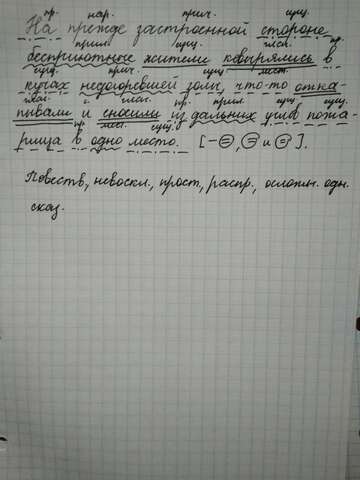 пр. нар. прич. сущ.
На прежде застроенной стороне
прил. сущ. глаг. пр.
бесприютные жители ковырялись в
сущ. прич. сущ. мест.
кучах недогоревшей золы, что-то отка-
глаг. с. глаг. пр. прил. сущ. сущ.
пывали и сносили из дальних углов пожа-
пр. мест. сущ.
рища в одно место. [- =, = и =].
Повеств., невоскл., прост., распр., осложн. одн.
сказ.